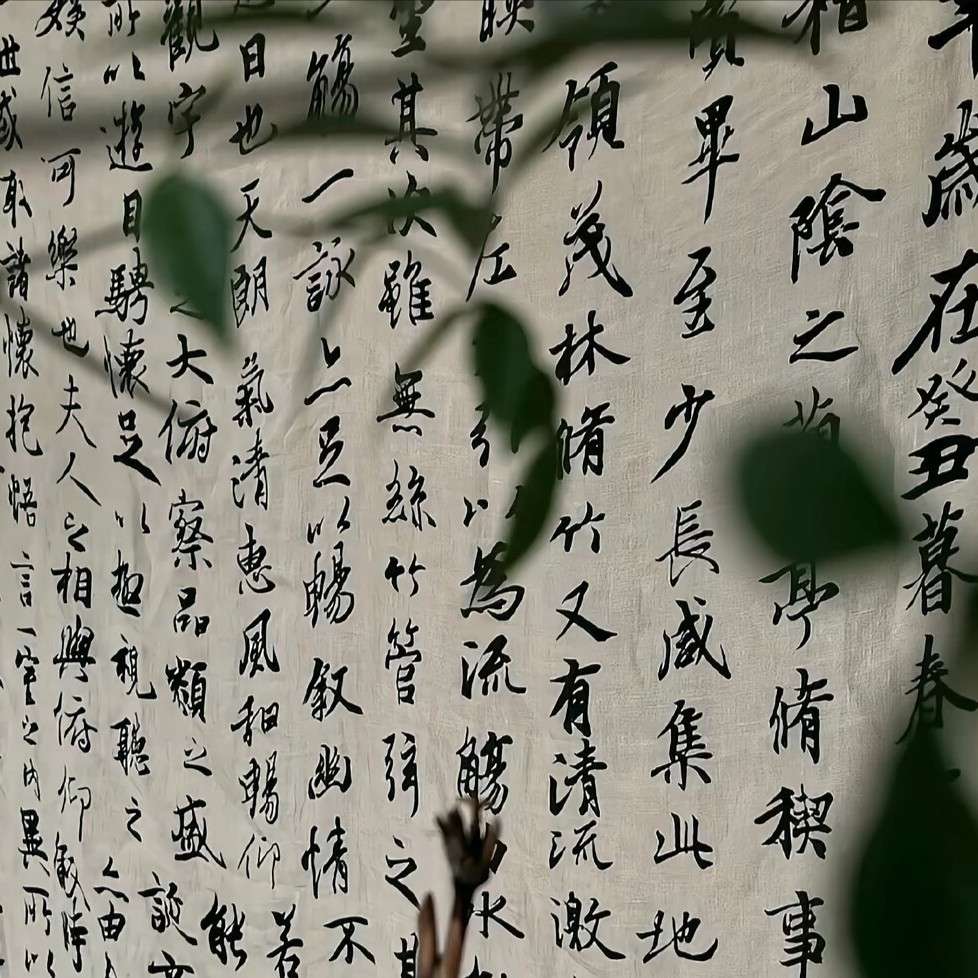 年歲在癸丑暮春
稽山陰之蘭亭脩稧事
賢畢至少長咸集此地
領茂林脩竹又有清流激
映帶左引以為流觴水
坐其次雖無絲竹管弦之
觴一詠亦足以暢敘幽情不
是日也天朗氣清惠風和暢仰若
觀宇之大俯察品類之盛能
所以遊目騁懷足以極視聽之亦由
娛信可樂也夫人之相與俯仰
世或取諸懷抱悟言一室之內異所以